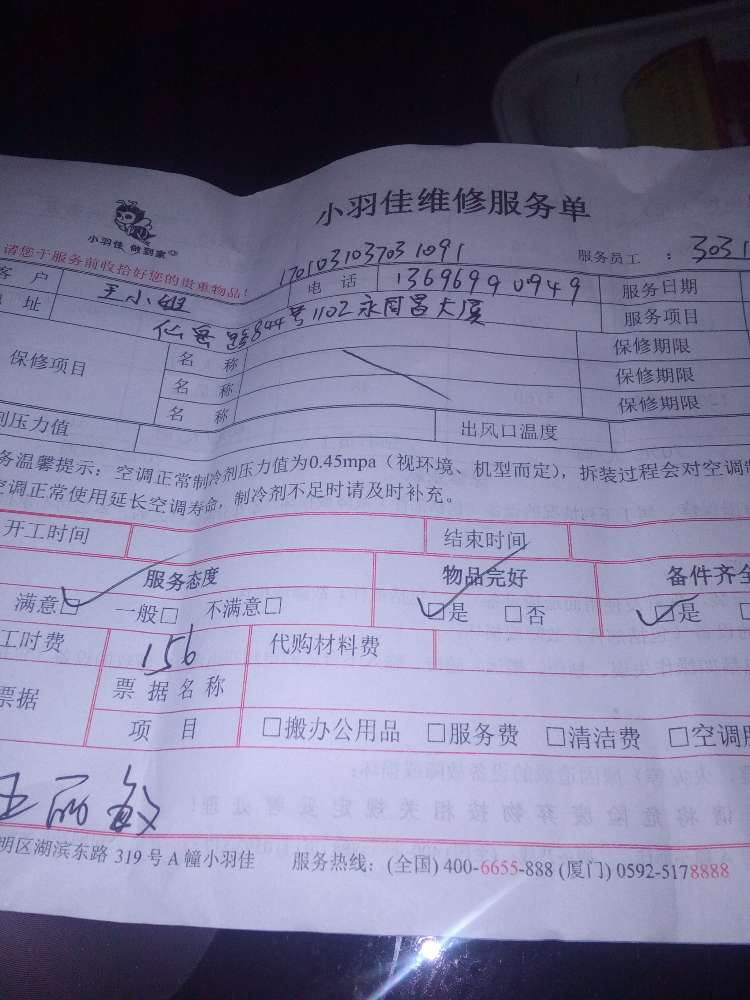 小羽佳维修服务单
小羽佳 做到家
请您于服务前收拾好您的贵重物品！
1701031037031091
服务员工 ： 3031
客 户 王小姐 电 话 13696990949 服务日期
址 仙岳路844号1102永同昌大厦 服务项目
保修项目 名 称 保修期限
名 称 保修期限
名 称 保修期限
剂压力值 出风口温度
务温馨提示：空调正常制冷剂压力值为0.45mpa（视环境、机型而定），拆装过程会对空调制
空调正常使用延长空调寿命，制冷剂不足时请及时补充。
开工时间 结束时间
服务态度 物品完好 备件齐全
满意□ 一般□ 不满意□ □是 □否 □是
工时费 156 代购材料费
票据 票 据 名 称
项 目 □搬办公用品 □服务费 □清洁费 □空调服
王丽敏
明区湖滨东路 319 号 A 幢小羽佳 服务热线：(全国) 400-6655-888 (厦门) 0592-5178888